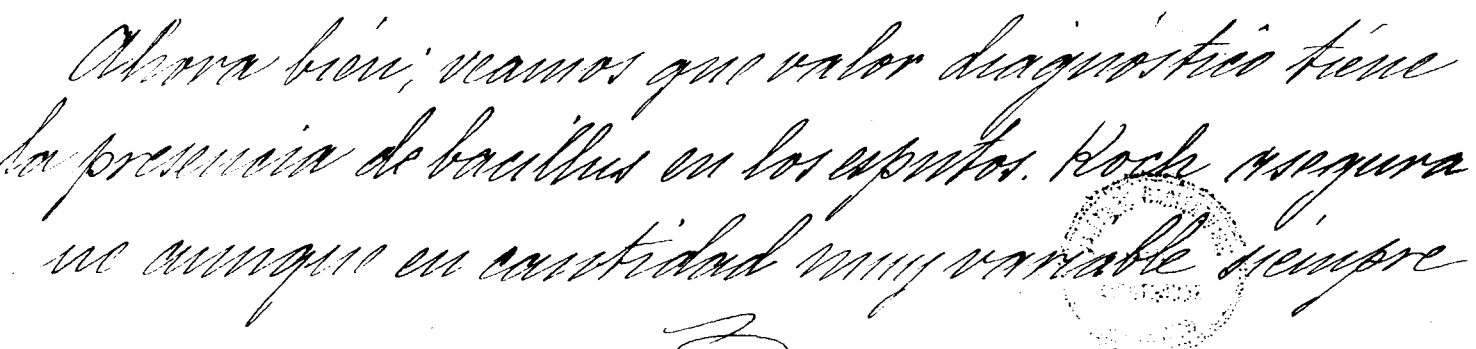 Ahora bién; veamos que valor diagnóstico tiéne
la presencia de bacillus en los esputos. Koch asegura
ue aunque en cantidad muy variable siémpre